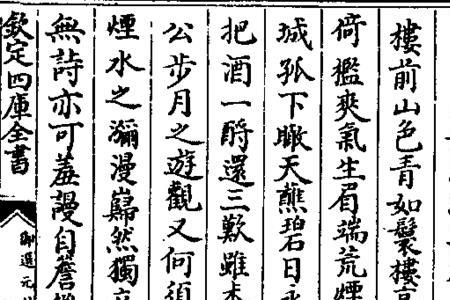 樓前山色青如鬟樓高
倚檻爽氣生眉端荒煙
城孤下瞰天蘸碧日永
把酒一酹還三歎雖未
公步月之遊觀又何須
煙水之瀰漫巋然獨立
無詩亦可羞謾自簷
欽定四庫全書
御選元